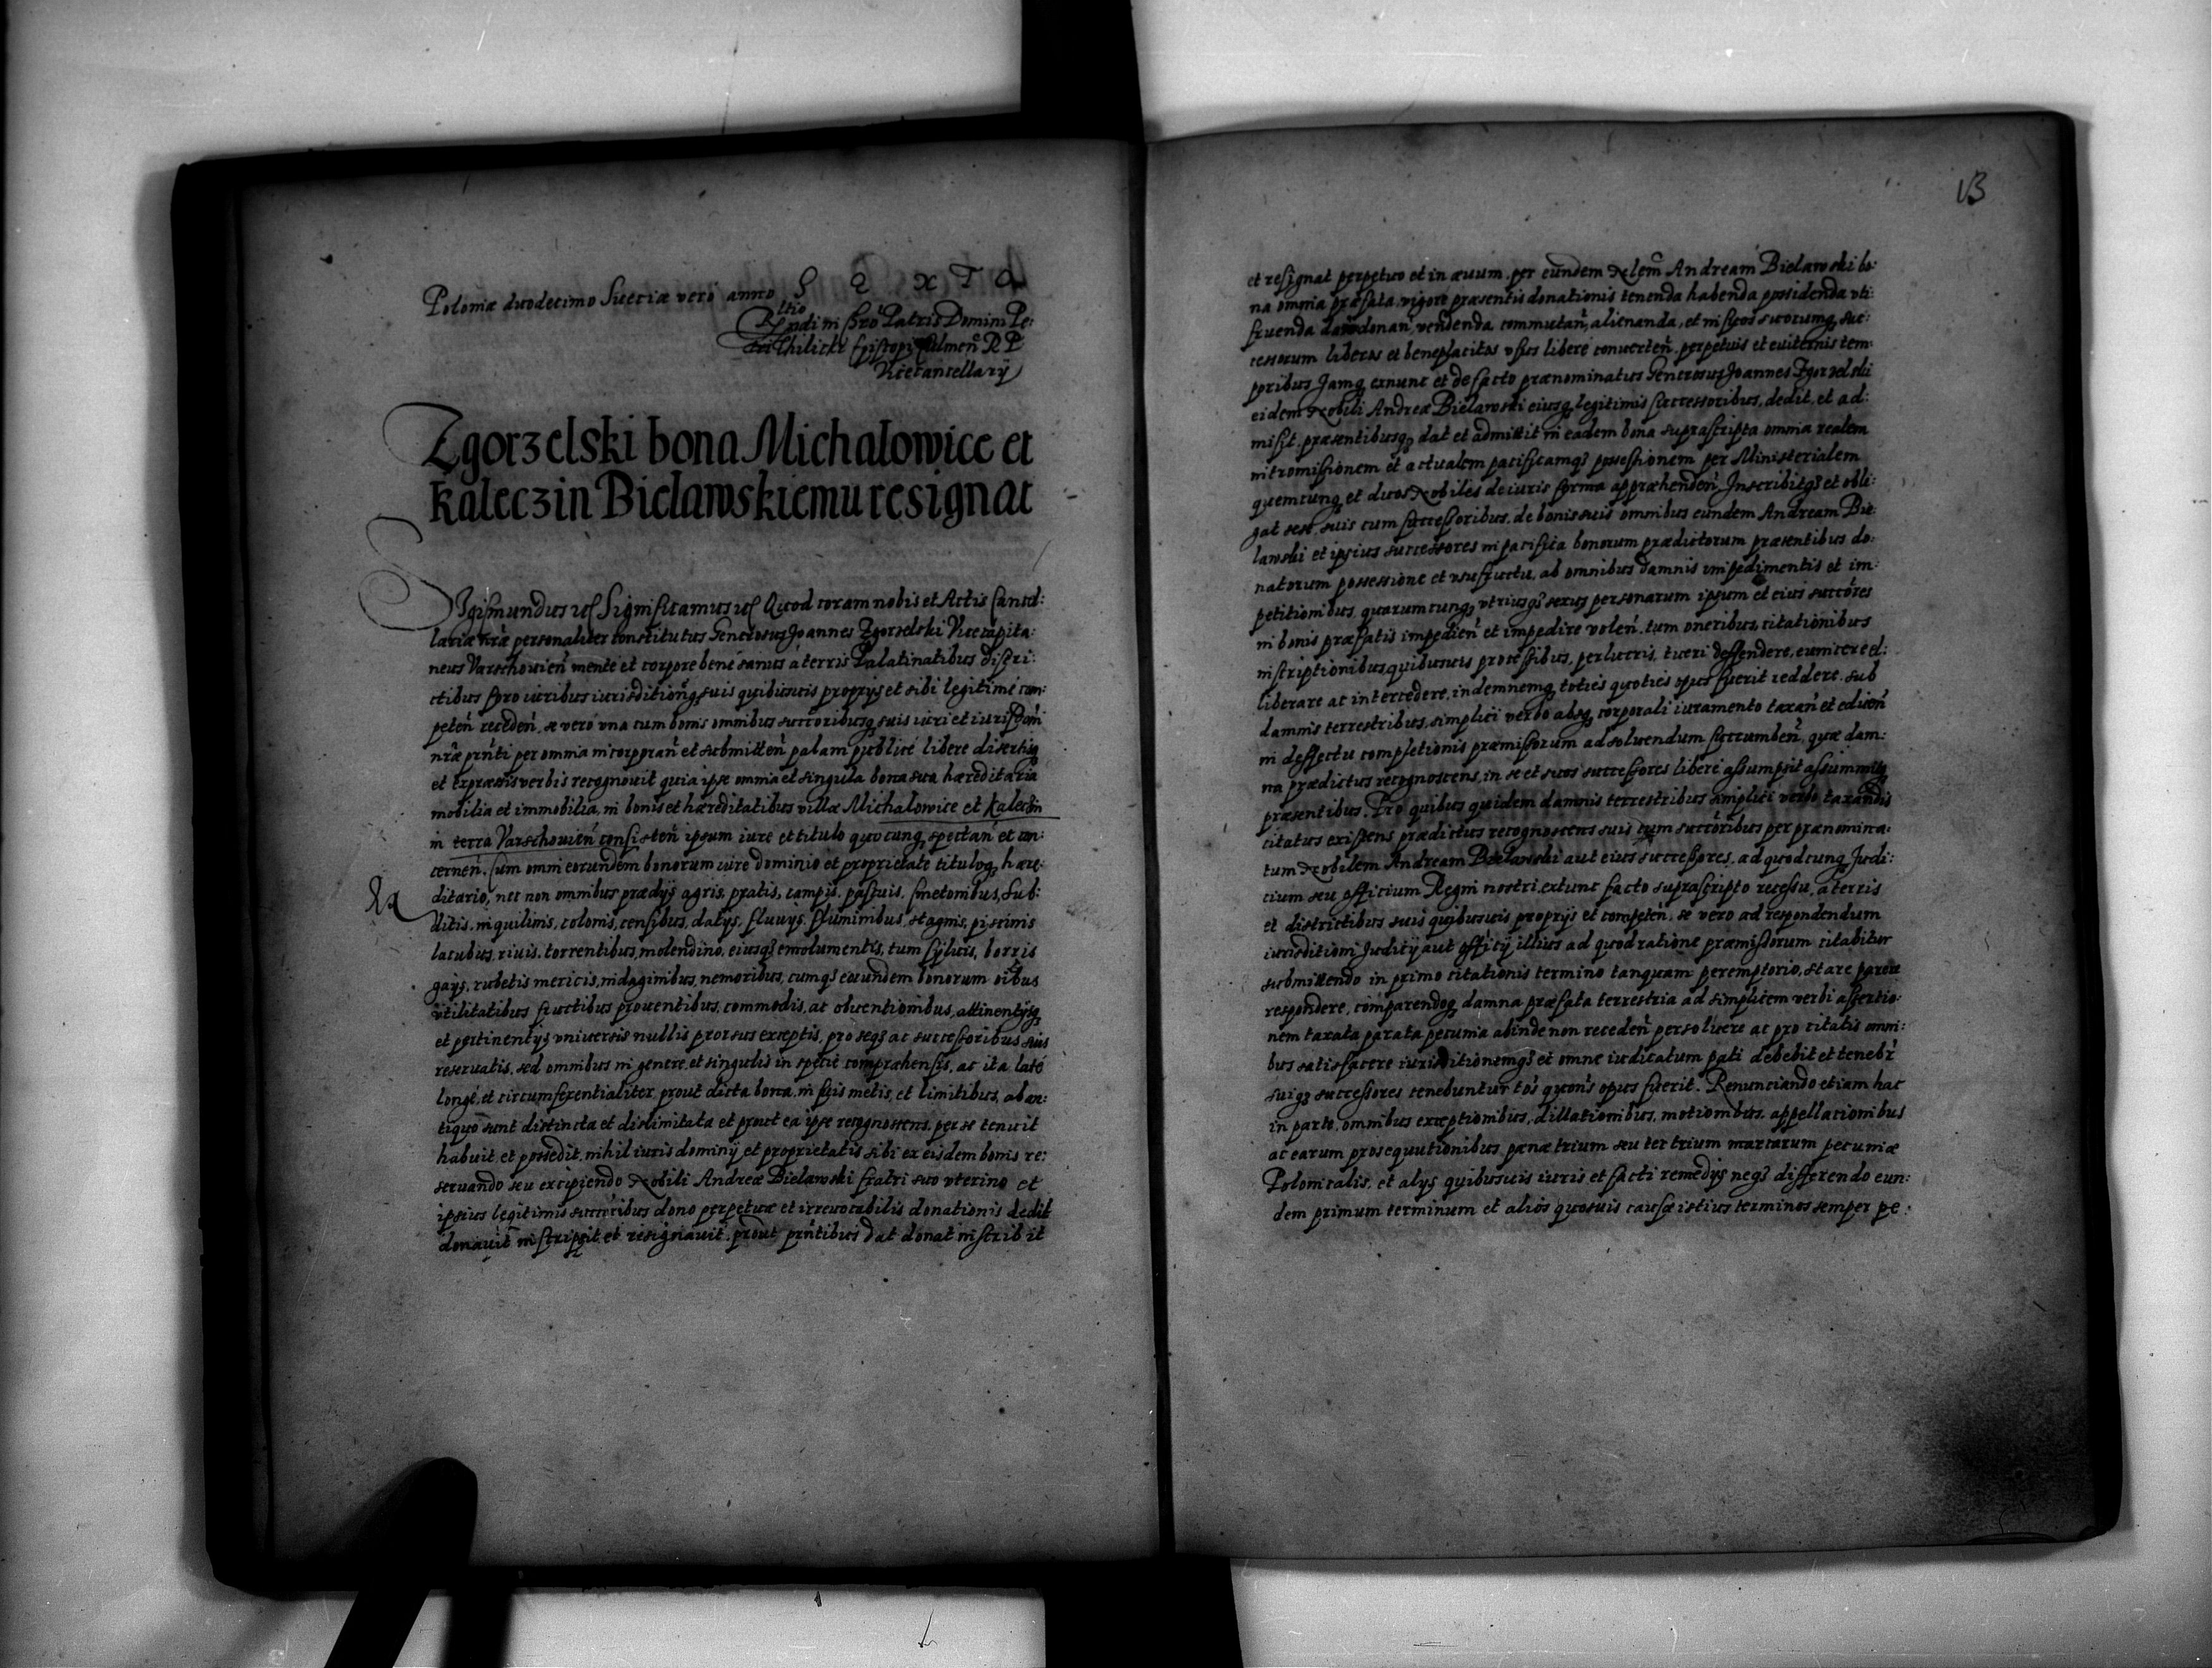 Poloniæ duodecimo Sueciæ vero anno S E X T O
Rltio
Rndi in Chrō Patris Domini Pe:
tri Thilicki Episcopi Culmeñ R P
Vicecancellarÿ
Zgorzelski bona Michalowice et
Kaleczin Bielawskiemu resignat
Sigismundus etc Significamus etc Quod coram nobis et Actis Cancel:
lariæ nræ personaliter constitutus Generosus Joannes Zgorzelski Vicecapita:
neus Varschouieñ mente et corpore bene sanus a terris Palatinatibus distri:
ctibus foro iuribus iurisditionq suis quibusuis proprÿs et sibi legitime com:
peteñ recedeñ, se vero vna cum bonis omnibus succoribusq suis iuri et iurisdoni
nræ pñti per omnia incorporañ et submitteñ palam publicé libere diserteq
et expræssis verbis recognouit quia ipse omnia et singula bona sua hæreditaria
mobilia et immobilia, in bonis et hæreditatibus villæ Michalowice et Kaleczin
in terra Varschouieñ consisteñ ipsum iure et titulo quocunq spectañ et con:
cerneñ. Cum omni eorundem bonorum iure dominio et proprietate tituloq hære:
ditario, nec non omnibus prædÿs agris, pratis, campis, pascuis, Cmetonibus, Sub:
ditis, inquilinis, colonis, censibus, datÿs, fluuÿs, fluminibus, stagnis, piscinis
lacubus, riuis, torrentibus, molendino, eiusq emolumentis, tum syluis, borris
gaÿs, rubetis mericis, indaginibus, nemoribus, cumq eorundem bonorum oibus
vtilitatibus fructibus prouentibus, commodis, ac obuentionibus, attinentÿsq
et pertinentÿs vniuersis nullis prorsus exceptis, pro seq ac successoribus suis
reseruatis, sed omnibus in genere, et singulis in specie compræhensis, ac ita laté
longé, et circumferentialiter, prout dicta bona, in suis metis, et limitibus, ab an:
tiquo sunt distincta et dislimitata et prout ea ipse recognoscens, per se tenuit
habuit et possedit, nihil iuris dominÿ et proprietatis sibi ex eisdem bonis re:
seruando seu excipiendo Nobili Andreæ Bielawski fratri suo vterino et
ipsius legitimis succoribus dono perpetuæ et irreuocabilis donationis dedit
donauit inscripsit et resignauit, prout pñtibus dat donat inscribit
13
et resignat perpetuo et in æuum. per eundem Nlem Andream Bielawski bo:
na omnia præfata, vigore præsentis donationis tenenda habenda possidenda vti:
fruenda donañ, vendenda, commutañ, alienanda, et in suos suorumq suc:
cessorum liberos et beneplacitos vsus libere conuerteñ. perpetuis et euiternis tem:
poribus Jamq exnunc et de facto prænominatus Generosus Joannes Zgorzelski
eidem Nobili Andreæ Bielawski eiusq legitimis successoribus, dedit, et ad:
misit, præsentibusq dat et admittit in eadem bona suprascripta omnia realem
intromissionem et actualem pacificamq possessionem per Ministerialem
quemcunq et duos Nobiles de iuris forma appræhendeñ Inscribitq et obli:
gat sese suis cum successoribus, de bonis suis omnibus eundem Andream Bie
lawski et ipsius successores in pacifica bonorum prædictorum præsentibus do:
natorum possessione et vsufructu, ab omnibus damnis impedimentis et im:
petitionibus quorumcunq, vtriusq sexus personarum ipsum et eius succores
in bonis præfatis impedieñ et impedire voleñ, tum oneribus, citationibus
inscriptionibus quibusuis processibus, perlucris, tueri deffendere, euincere et:
liberare ac intercedere, indemnemq toties quoties opus fuerit reddere. sub
damnis terrestribus, simplici verbo absq corporali iuramento taxañ et ediceñ
in deffectu completionis præmissorum ad soluendum succumbeñ, quæ dam:
na prædictus recognoscens, in se et suos successores libere assumpsit assummitq
præsentibus. Pro quibus quidem damnis terrestribus simplici verbo taxandis
citatus existens prædictus recognoscens suis cum succoribus per prænomina:
tum Nobilem Andream Bielawski aut eius successores, ad quodcunq Judi:
cium seu officium Regni nostri, extunc facto suprascripto recessu, a terris
et districtibus suis quibusuis proprÿs et competeñ, se vero ad respondendum
iurisditioni Juditÿ aut offitÿ illius ad quod ratione præmissorum citabitur
submittendo in primo citationis termino tanquam peremptorio, stare parere
respondere, comparendoq damna præfata terrestria ad simplicem verbi assertio:
nem taxata parata pecunia abinde non recedeñ persoluere ac pro citatis omni:
bus satisfacere iurisditionemq et omne iudicatum pati debebit et tenebr
suiq successores tenebuntur tos quons opus fuerit. Renunciando etiam hac
in parte, omnibus exceptionibus, dillationibus, motionibus, appellationibus
ac earum prosequutionibus, pænæ trium seu ter trium marcarum pecuniæ
Polonicalis, et alÿs quibusuis iuris et facti remedÿs neq differendo eun:
dem primum terminum et alios quosuis causæ istius terminos semper pe: